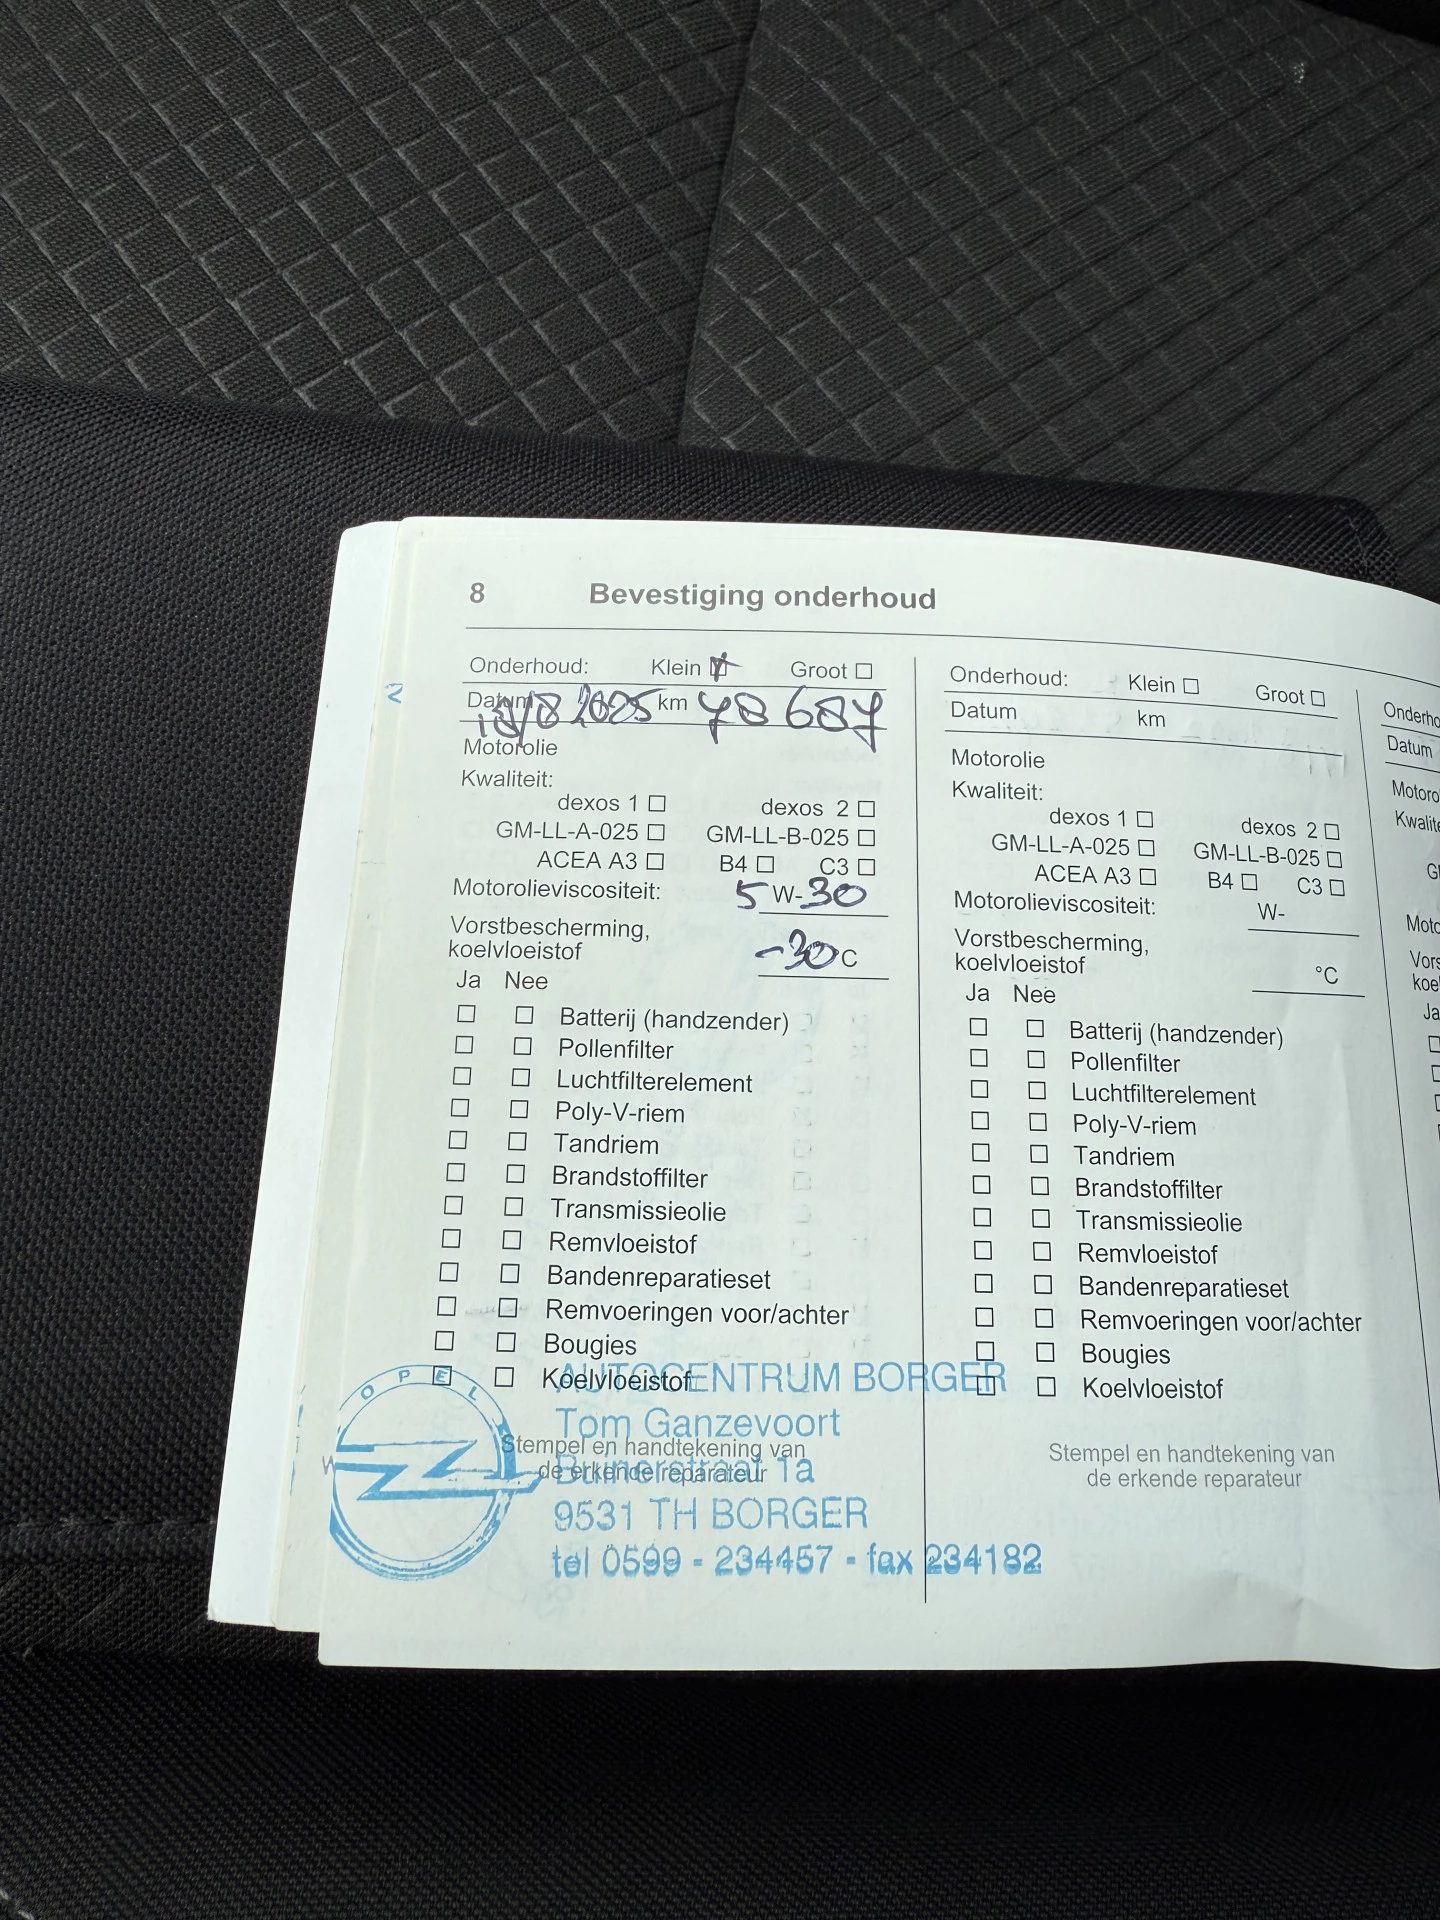 8 Bevestiging onderhoud
Onderhoud: Klein Groot
Datum 2025 km 78 687
Motorolie
Kwaliteit:
dexos 1 dexos 2
GM-LL-A-025 GM-LL-B-025
ACEA A3 B4 C3
Motorolieviscositeit: 5 W-30
Vorstbescherming,
koelvloeistof -30 °C
Ja Nee
Batterij (handzender)
Pollenfilter
Luchtfilterelement
Poly-V-riem
Tandriem
Brandstoffilter
Transmissieolie
Remvloeistof
Bandenreparatieset
Remvoeringen voor/achter
Bougies
Koelvloeistof
Stempel en handtekening van
de erkende reparateur
OPEL
AUTOCENTRUM BORGER
Tom Ganzevoort
1a
9531 TH BORGER
tel 0599 - 234457 - fax 234182
Onderhoud: Klein Groot
Datum km
Motorolie
Kwaliteit:
dexos 1 dexos 2
GM-LL-A-025 GM-LL-B-025
ACEA A3 B4 C3
Motorolieviscositeit: W-
Vorstbescherming,
koelvloeistof °C
Ja Nee
Batterij (handzender)
Pollenfilter
Luchtfilterelement
Poly-V-riem
Tandriem
Brandstoffilter
Transmissieolie
Remvloeistof
Bandenreparatieset
Remvoeringen voor/achter
Bougies
Koelvloeistof
Stempel en handtekening van
de erkende reparateur
Datum